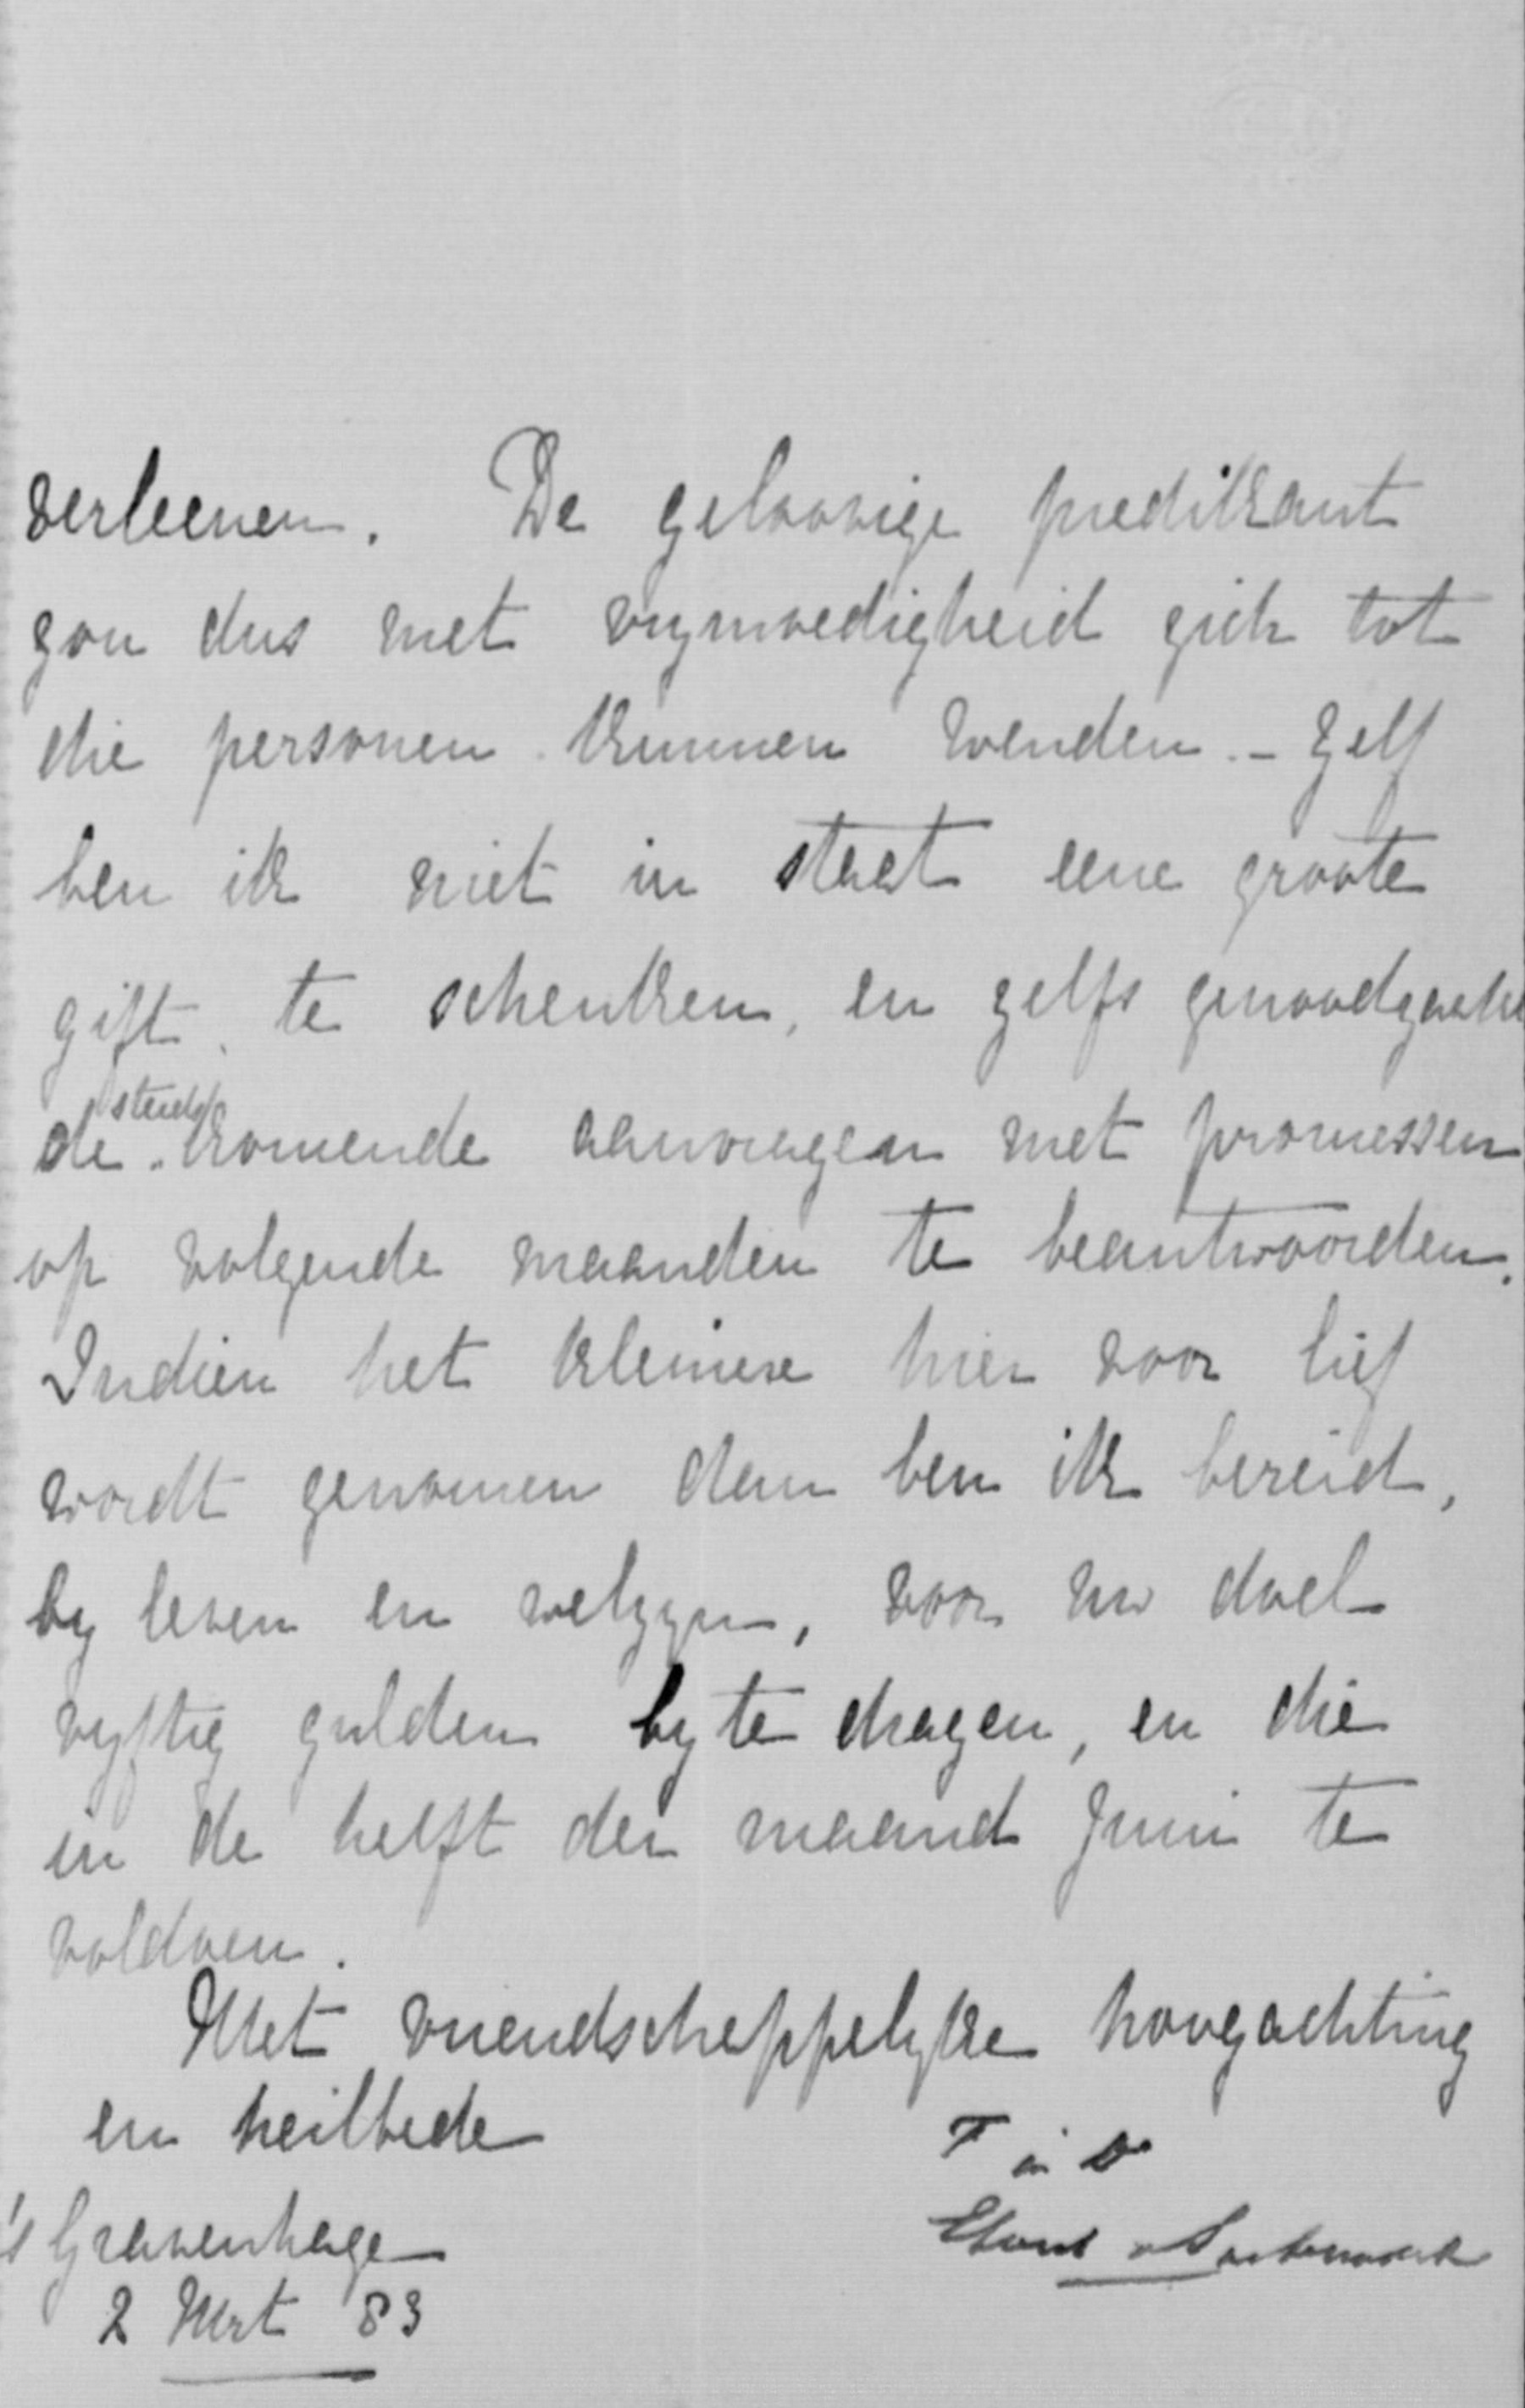 verleenen. De geloovige predikant
zou dus met vrymoedigheid zich tot
die personen kunnen wenden. - Zelf
ben ik niet in staat eene groote
gift te schenken, en zelfs genoodzaakt
de steeds komende aanvragen met promessen
op volgende maanden te beantwoorden.
Indien het kleinere hier voor lief
wordt genomen dan ben ik bereid,
by leven en welzyn, voor uw doel
vyftig gulden by te dragen, en die
in de helft der maand Juni te
voldoen.
Met vriendschappelyke hoogachting
en heilbede
T à V
Elout v Soeterwoude
's Gravenhage
2 Mrt 83